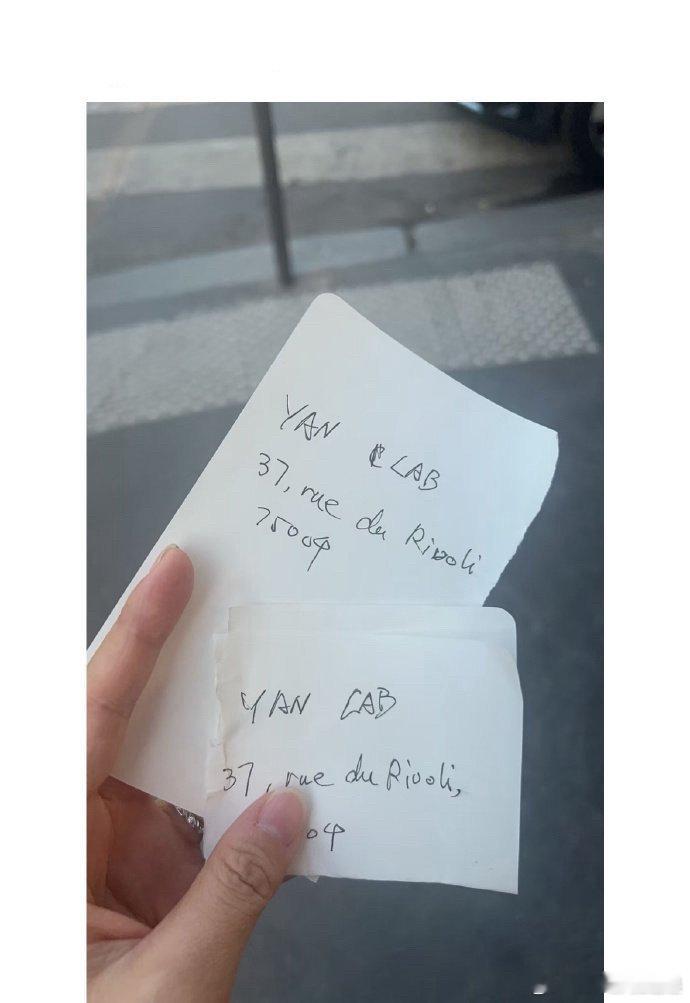 YAN CLAB
37, rue du Rivoli
75004
YAN LAB
37, rue du Rivoli,
04